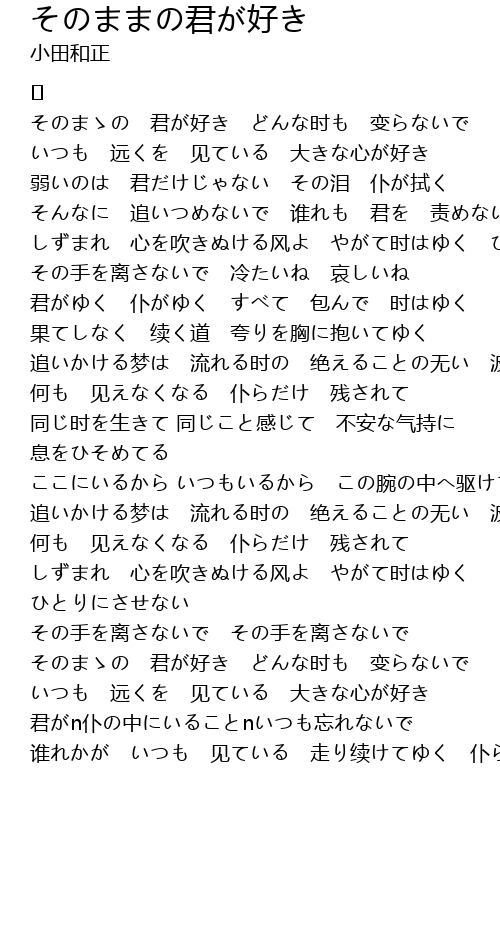 そのままの君が好き
小田和正
そのまゝの　君が好き　どんな时も　变らないで
いつも　远くを　见ている　大きな心が好き
弱いのは　君だけじゃない　その泪　仆が拭く
そんなに　追いつめないで　谁れも　君を　责めない
しずまれ　心を吹きぬける风よ　やがて时はゆく　ひ
その手を离さないで　冷たいね　哀しいね
君がゆく　仆がゆく　すべて　包んで　时はゆく
果てしなく　续く道　夸りを胸に抱いてゆく
追いかける梦は　流れる时の　绝えることの无い　波
何も　见えなくなる　仆らだけ　残されて
同じ时を生きて 同じこと感じて　不安な气持に
息をひそめてる
ここにいるから いつもいるから　この腕の中へ驱け
追いかける梦は　流れる时の　绝えることの无い　波
何も　见えなくなる　仆らだけ　残されて
しずまれ　心を吹きぬける风よ　やがて时はゆく
ひとりにさせない
その手を离さないで　その手を离さないで
そのまゝの　君が好き　どんな时も　变らないで
いつも　远くを　见ている　大きな心が好き
君がn仆の中にいることnいつも忘れないで
谁れかが　いつも　见ている　走り续けてゆく　仆ら